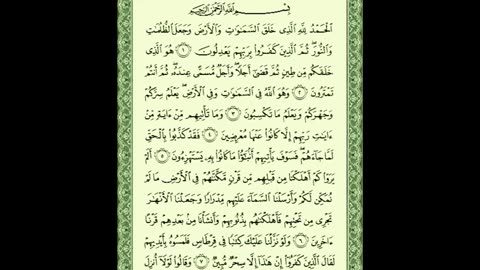 بِسْمِ اللَّهِ الرَّحْمَٰنِ الرَّحِيمِ
الْحَمْدُ لِلَّهِ الَّذِي خَلَقَ السَّمَٰوَٰتِ وَالْأَرْضَ وَجَعَلَ الظُّلُمَٰتِ
وَالنُّورَ ۖ ثُمَّ الَّذِينَ كَفَرُوا بِرَبِّهِمْ يَعْدِلُونَ ١ هُوَ الَّذِي
خَلَقَكُم مِّن طِينٍ ثُمَّ قَضَىٰ أَجَلًا ۖ وَأَجَلٌ مُّسَمًّى عِندَهُ ۖ ثُمَّ أَنتُمْ
تَمْتَرُونَ ٢ وَهُوَ اللَّهُ فِي السَّمَٰوَٰتِ وَفِي الْأَرْضِ ۖ يَعْلَمُ سِرَّكُمْ
وَجَهْرَكُمْ وَيَعْلَمُ مَا تَكْسِبُونَ ٣ وَمَا تَأْتِيهِم مِّنْ ءَايَةٍ مِّنْ
ءَايَٰتِ رَبِّهِمْ إِلَّا كَانُوا عَنْهَا مُعْرِضِينَ ٤ فَقَدْ كَذَّبُوا بِالْحَقِّ
لَمَّا جَاءَهُمْ ۖ فَسَوْفَ يَأْتِيهِمْ أَنۢبَٰٓؤُا مَا كَانُوا بِهِ يَسْتَهْزِءُونَ ٥ أَلَمْ
يَرَوْا كَمْ أَهْلَكْنَا مِن قَبْلِهِم مِّن قَرْنٍ مَّكَّنَّٰهُمْ فِي الْأَرْضِ مَا لَمْ
نُمَكِّن لَّكُمْ وَأَرْسَلْنَا السَّمَاءَ عَلَيْهِم مِّدْرَارًا وَجَعَلْنَا الْأَنْهَٰرَ
تَجْرِي مِن تَحْتِهِمْ فَأَهْلَكْنَٰهُم بِذُنُوبِهِمْ وَأَنشَأْنَا مِنۢ بَعْدِهِمْ قَرْنًا
ءَاخَرِينَ ٦ وَلَوْ نَزَّلْنَا عَلَيْكَ كِتَٰبًا فِي قِرْطَاسٍ فَلَمَسُوهُ بِأَيْدِيهِمْ
لَقَالَ الَّذِينَ كَفَرُوا إِنْ هَٰذَا إِلَّا سِحْرٌ مُّبِينٌ ٧ وَقَالُوا لَوْلَا أُنزِلَ